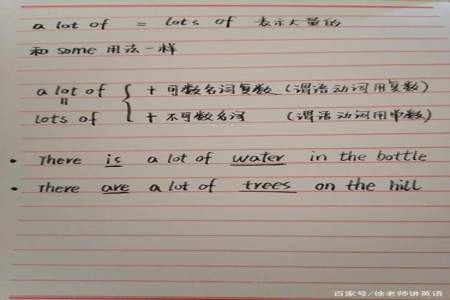 a lot of = lots of 表示大量的
和 some 用法一样
a lot of { + 可数名词复数 (谓语动词用复数)
=
lots of + 不可数名词 (谓语动词用单数)
• There is a lot of water in the bottle
• There are a lot of trees on the hill
百家号/徐老师讲英语